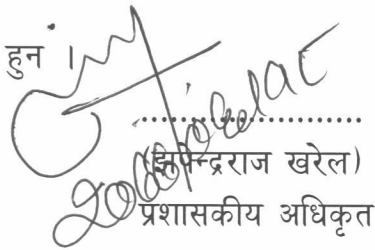 हुन ।
(झपेन्द्रराज खरेल)
प्रशासकीय अधिकृत